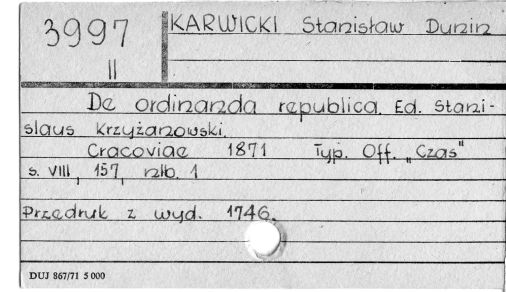 3997
II
KARWICKI Stanisław Dunin
De ordinanda republica. Ed. Stani-
slaus Krzyżanowski.
Cracoviae 1871 Typ. Off. „Czas"
s. VIII, 157, nlb. 1
Przedruk z wyd. 1746.
DUJ 867/71 5 000